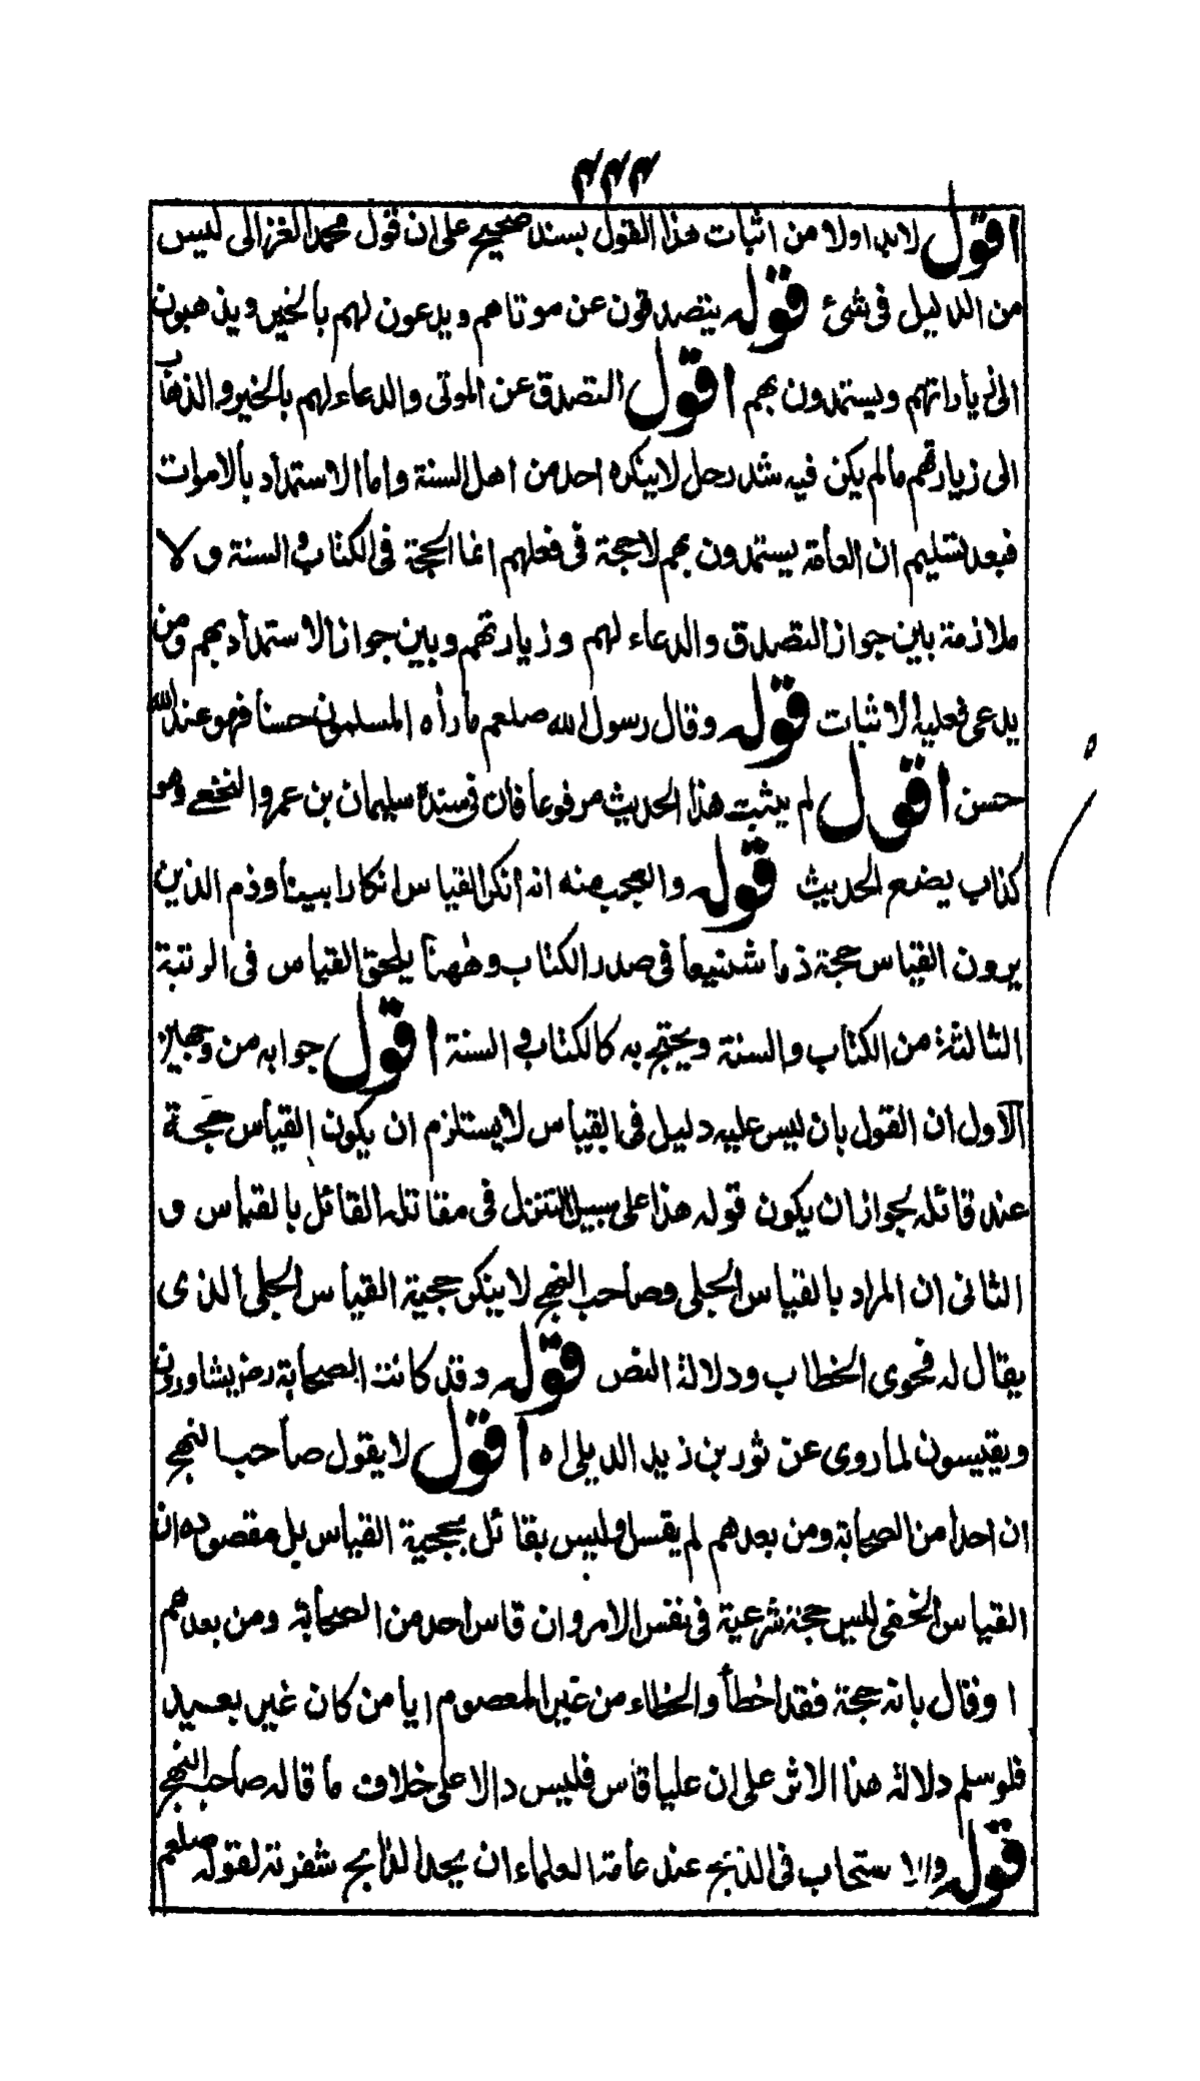 ٢٢٢
اقول لابد اولا من اثبات هذا القول بسند صحيح على ان قول محمد الغزالى ليس
من الدليل فى شئ قوله يتصدقون عن موتاهم ويدعون لهم بالخير ويذهبون
الى زياراتهم ويستمدون بهم اقول التصدق عن الموتى والدعاء لهم بالخير والذهاب
الى زيارتهم مالم يكن فيه شد رحل لا ينكره احد من اهل السنة واما الاستمداد بالاموات
فبعد تسليم ان العامة يستمدون بهم لا حجة فى فعلهم انما الحجة فى الكتاب والسنة ولا
ملازمة بين جواز التصدق والدعاء لهم وزيارتهم وبين جواز الاستمداد بهم ومن
يدعى فعليه الاثبات قوله وقال رسول الله صلعم ما رأه المسلمون حسنا فهو عند الله
حسن اقول لم يثبت هذا الحديث مرفوعا فان فى سنده سليمان بن عمرو النخعى وهو
كذاب يضع الحديث قوله والعجب منه انه انكر القياس انكارا بينا وذم الذين
يرون القياس حجة ذما شنيعا فى صدر الكتاب وههنا يلحق القياس فى الرتبة
الثالثة من الكتاب والسنة ويحتج به كالكتاب والسنة اقول جوابه من وجهين
الاول ان القول بان ليس عليه دليل فى القياس لا يستلزم ان يكون القياس حجة
عند قائله بجواز ان يكون قوله هذا على سبيل التنزل فى مقاتله القائل بالقياس و
الثانى ان المراد بالقياس الجلى وصاحب النهج لا ينكر حجية القياس الجلى الذى
يقال له فحوى الخطاب ودلالة النص قوله وقد كانت الصحابة رض يشاورون
ويقيسون لما روى عن ثور بن زيد الديلى اه اقول لا يقول صاحب النهج
ان احدا من الصحابة ومن بعدهم لم يقس وليس بقائل بحجية القياس بل مقصوده ان
القياس الخفى ليس حجة شرعية فى نفس الامر وان قاس احد من الصحابة ومن بعدهم
او قال بانه حجة فقد اخطأ والخطاء من غير المعصوم ايا من كان غير بعيد
فلو سلم دلالة هذا الاثر على ان عليا قاس فليس دالا على خلاف ما قاله صاحب النهج
قوله والاستحباب فى الذبح عند عامة العلماء ان يحد الذابح شفرته لقوله صلعم